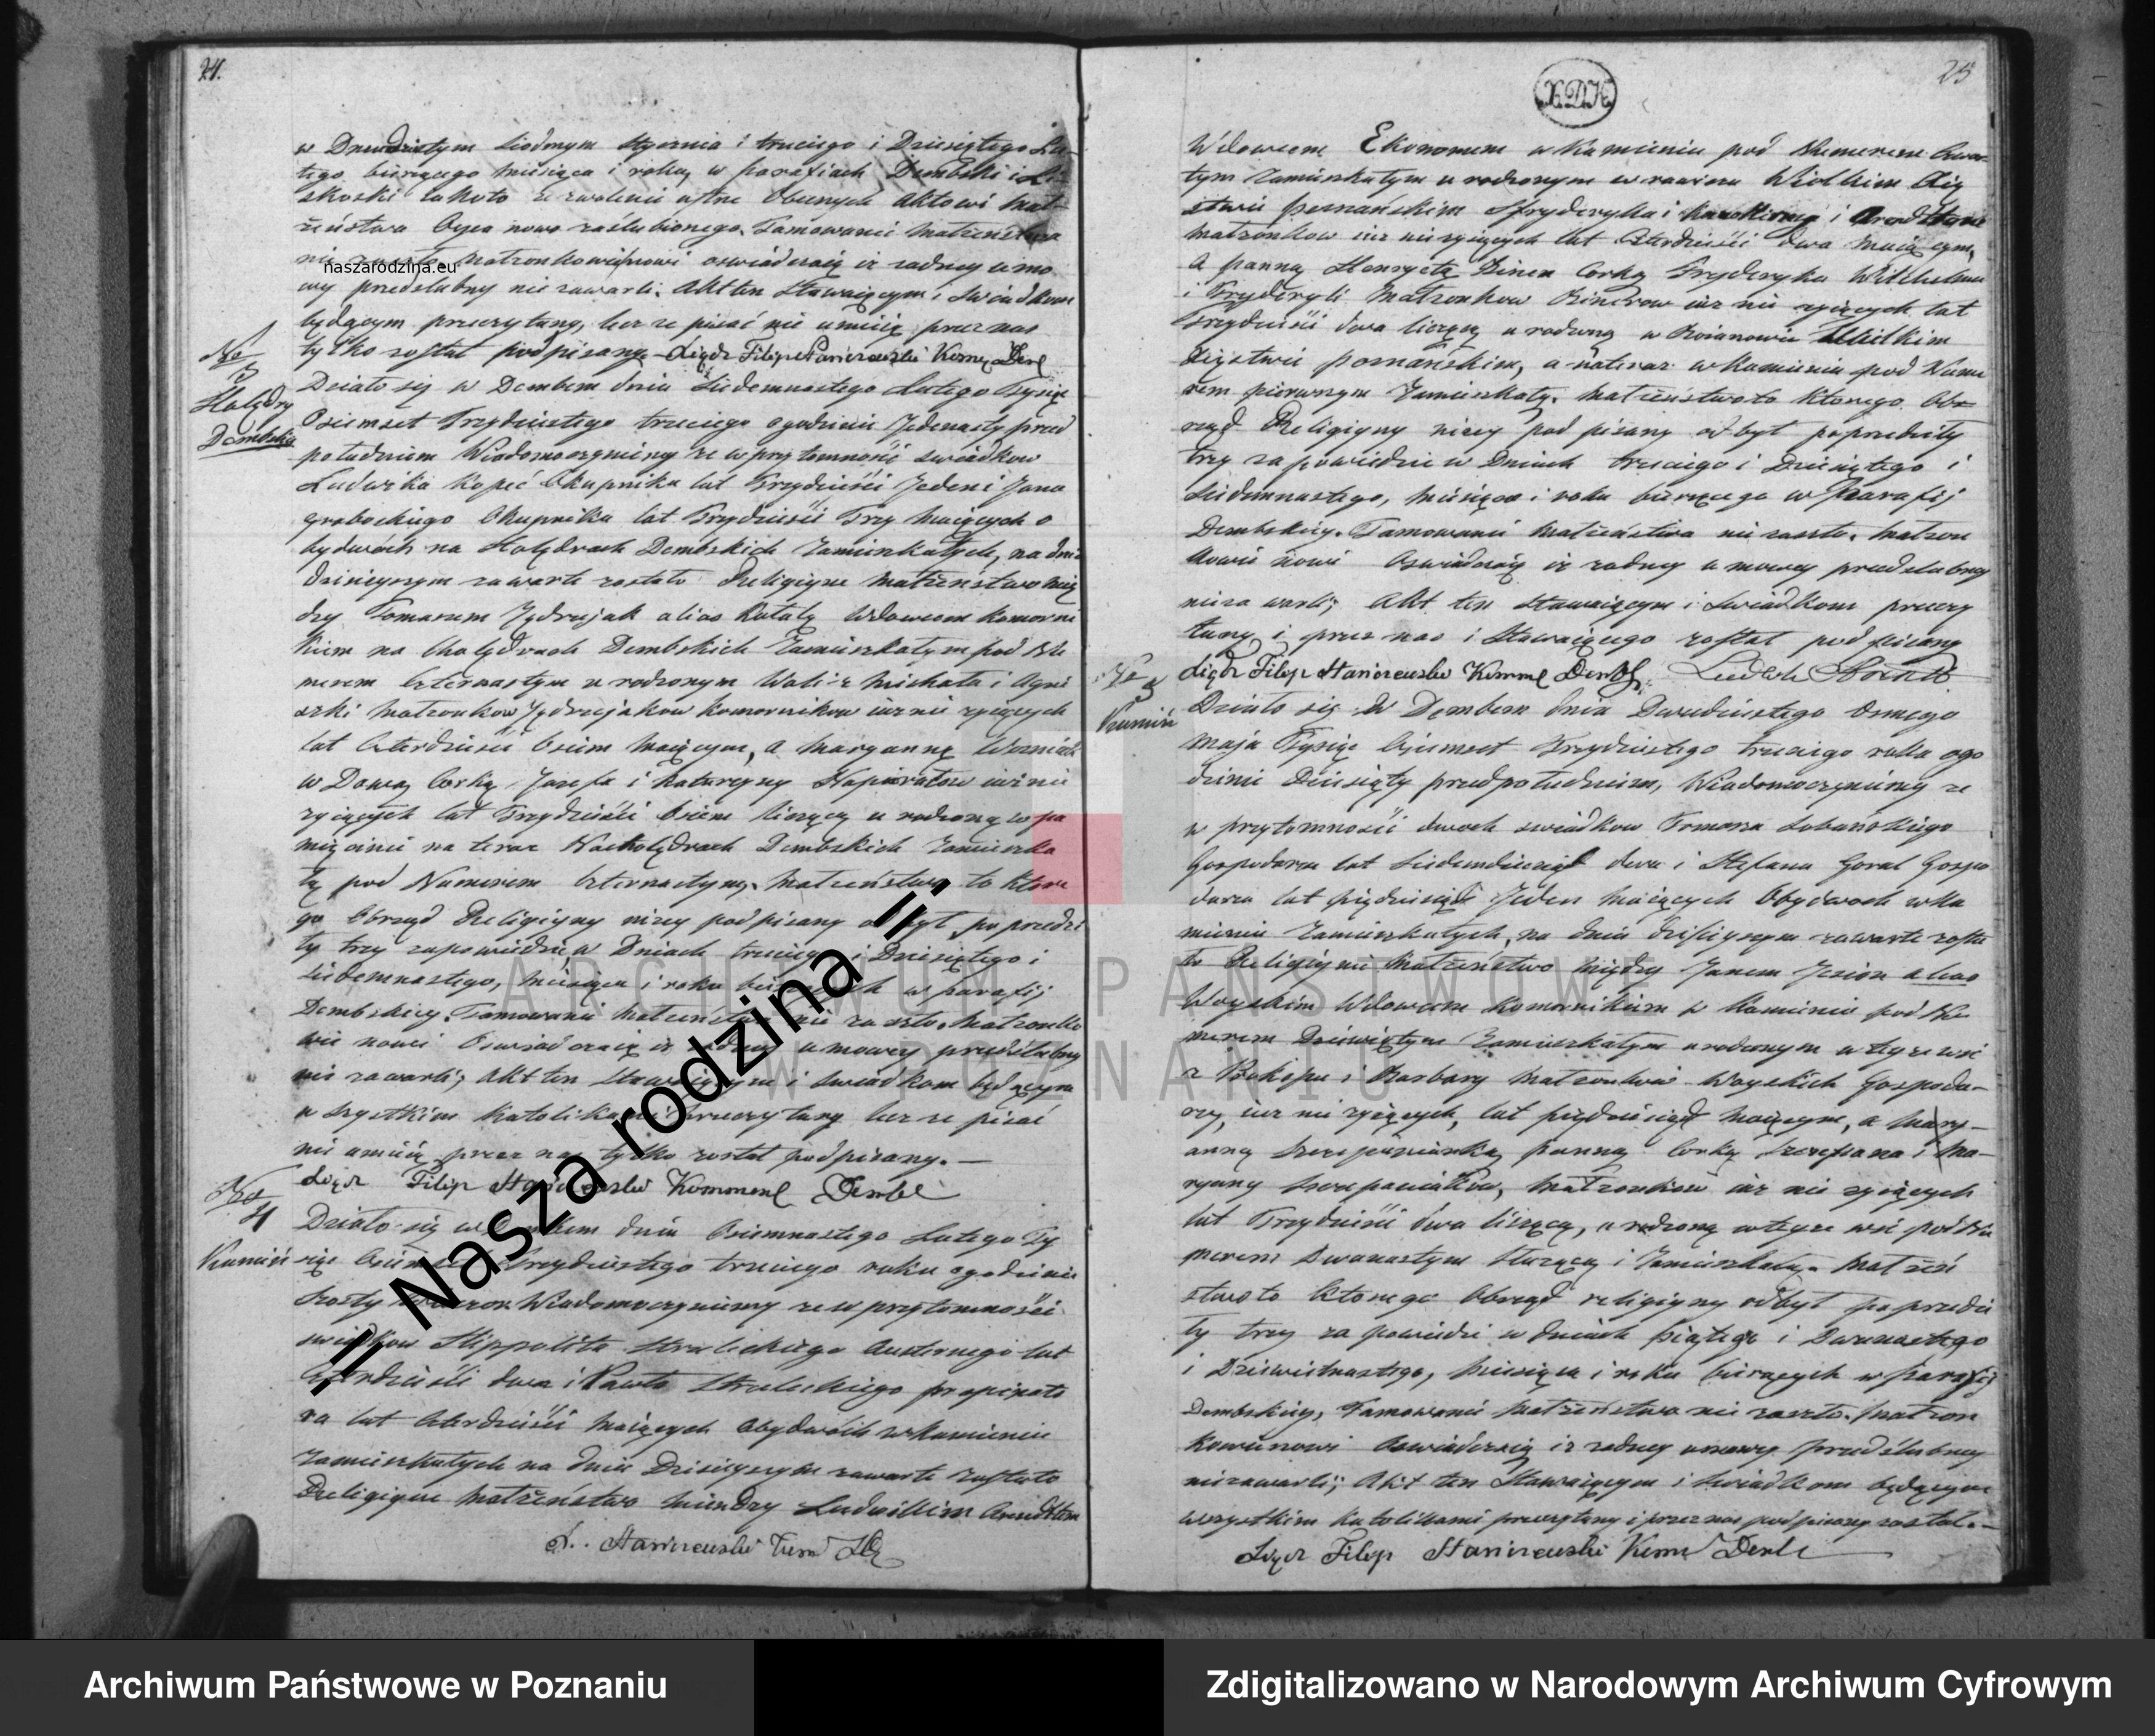 24.
w Dwudziestym siodmym stycznia i trzeciego i Dziesiątego Lu-
tego bieżącego miesiąca i roku, w parafiach Dembski i
skoski iakoto ze zwolenie ustne Obecnych Aktowi Mał-
żeństwa Oyca nowo zaślubionego. Tamowanie małżeństwa
nie zaszło małżonkowie nowi oswiadczaią iż żadney umo
wy przedślubny nie zawarli. Akt ten stawaiącym i swiadkom
będącym przeczytany, lecz ze pisać nie umieią przez nas
tylko został podpisany - Xiądz Filip Staniszewski Komm Demb
naszarodzina.eu
No 3
Holędry
Dembskie
Działo się w Dembem dnia siedemnastego Lutego Tysiąc
Osiemset Trzydziestego trzeciego o godzinie Jedenasty przed
południem Wiadomo czyniemy ze w przytomności swiadkow
Ludwika Kopeć Okupnika lat Trzydzieści Jeden i Jana
Grobockiego Okupnika lat Trzydzieści Trzy maiących o
bydwóch na Holędrach Dembskich zamieszkałych, na dniu
dzisieyszym zawarte zostało Religiyne małżeństwo mię
dzy Tomaszem Jędrzejak alias Ratalą Wdowcem komorni
kiem na Cholędrach Dembskich Zamieszkałym pod Nu
merem Czternastym urodzonym Michała i Agni
szki małżonkow Jędrzejakow komornikow iuż nie zyiących
lat Czterdzieści Osiem maiącym, a Maryanną
w Dową Corką Jozefa i Katarzyny iuż nie
zyiących lat Trzydzieści Osiem liczącą urodzoną w pa
mięcinie na teraz Na Cholędrach Dembskich zamieszka
łą pod Numerem Czternastym. Małżeństwo to które
go Obrząd Religiyny niżey podpisany odbył poprzedzi
ły trzy zapowiedzie w Dniach trzeciego i Dziesiątego i
siedemnastego, miesiąca i roku bieżących w parafij
Dembskiey. Tamowanie małżeństwa nie zaszło. Małżonko
wie nowi Oswiadczaią iż żadney umowey przedślubny
nie zawarli; Akt ten stawaiącym i swiadkom będącym
wszystkim katolikami przeczytany lecz ze pisać
nie umieią przez nas tylko został podpisany. —
Xiądz Filip Staniszewski Kommend Dembe
No 4
Kamień
Działo się w Dembem dnia Osiemnastego Lutego Ty
siąc Osiemset Trzydziestego trzeciego roku o godzinie
szosty wieczor. Wiadomo czyniemy ze w przytomności
swiadkow Hippolita Straleckiego lat
Czterdzieści dwa i Pawła Straleckiego propinato
ra lat Czterdzieści maiących obydwóch w Kamieniu
zamieszkałych na dniu Dzisieyszym zawarte zostało
Religiyne małżeństwo miendzy Ludwikiem Arendtem
X. Staniszewski Kom D
25
X.D.K.
Wdowcem Ekonomem w Kamieniu pod Numerem Czwar-
tym zamieszkałym urodzonym w Wielkim Xię
stwie poznańskim z Fryderyka i Karoliny i Arendtow
małżonkow iuż nie zyiących lat Czterdzieści dwa maiącym,
a panną Henrytą Corką Fryderyka Wilhelma
i Fryderyki małżonkow iuż nie zyiących lat
Trzydzieści dwa liczącą urodzoną w Boianowie Wielkim
Xięstwie poznańskim, a nateraz w Kamieniu pod Nume
rem pierwszym Zamieszkałą. Małżeństwo to którego Ob
rząd Religiyny niżey pod pisany odbył poprzedziły
trzy zapowiedzie w Dniach trzeciego i Dziesiątego i
siedemnastego, miesiąca i roku bieżącego w Parafij
Dembskiey. Tamowanie małżeństwa nie zaszło. Małżon
kowie nowi Oswiadczaią iż żadney umowey przedslubney
nie zawarli; Akt ten stawaiącym i swiadkom przeczy
tany i przez nas i Stawaiącego został pod pisany
Xiądz Filip Staniszewski Komme Demb. Ludwk Arendt
No 5
Kamień
Działo się w Dembem dnia Dwudziestego Osmego
Maja Tysiąc Osiemset Trzydziestego trzeciego roku ogo
dzinie Dziesiąty przed południem, Wiadomo czyniemy ze
w przytomności dwoch swiadkow Tomasza Lobańskiego
Gospodarza lat siedemdziesiąt dwa i Stefana Goral Gospo
darza lat pięćdziesiąt Jeden maiących Obydwoch w Ka
mieniu zamieszkałych, na dniu dzisieyszym zawarte zosta
ło Religiyne Małżeństwo między Janem Jezion alias
Woyskim Wdowcem Komornikiem w Kamieniu pod Nu
merem Dziewiątym Zamieszkałym urodzonym w teyze wsi
z Prokopa i Barbary małżonkow Woyskich Gospoda-
rzy, iuż nie zyiących, lat pięćdziesiąt maiącym, a Mary-
anną Szczepaniakką panną Corką Szczepana i Ma-
ryanny Szczepaniakow, małżonkow iuż nie zyiących
lat Trzydzieści dwa liczącą, urodzoną w teyze wsi pod Nu
merem Dwanastym służącą i Zamieszkałą. Małżeń
stwo to którego Obrząd religiyny odbył poprzedzi
ły trzy zapowiedzi w dniach piątego i Dwunastego
i Dziewietnastego, miesiąca i roku bieżących w Parafij
Dembskiey, Tamowanie małżeństwa nie zaszło. Małżon
kowie nowi oswiadczaią iż żadney umowy przedślubney
nie zawarli; Akt ten stawaiącym i swiadkom będącym
wszystkim katolikami przeczytany i przez nas podpisany został. —
Xiądz Filip Staniszewski Komm Dembe
ARCHIWUM PAŃSTWOWE
W POZNANIU
-- Nasza rodzina --
Archiwum Państwowe w Poznaniu
Zdigitalizowano w Narodowym Archiwum Cyfrowym